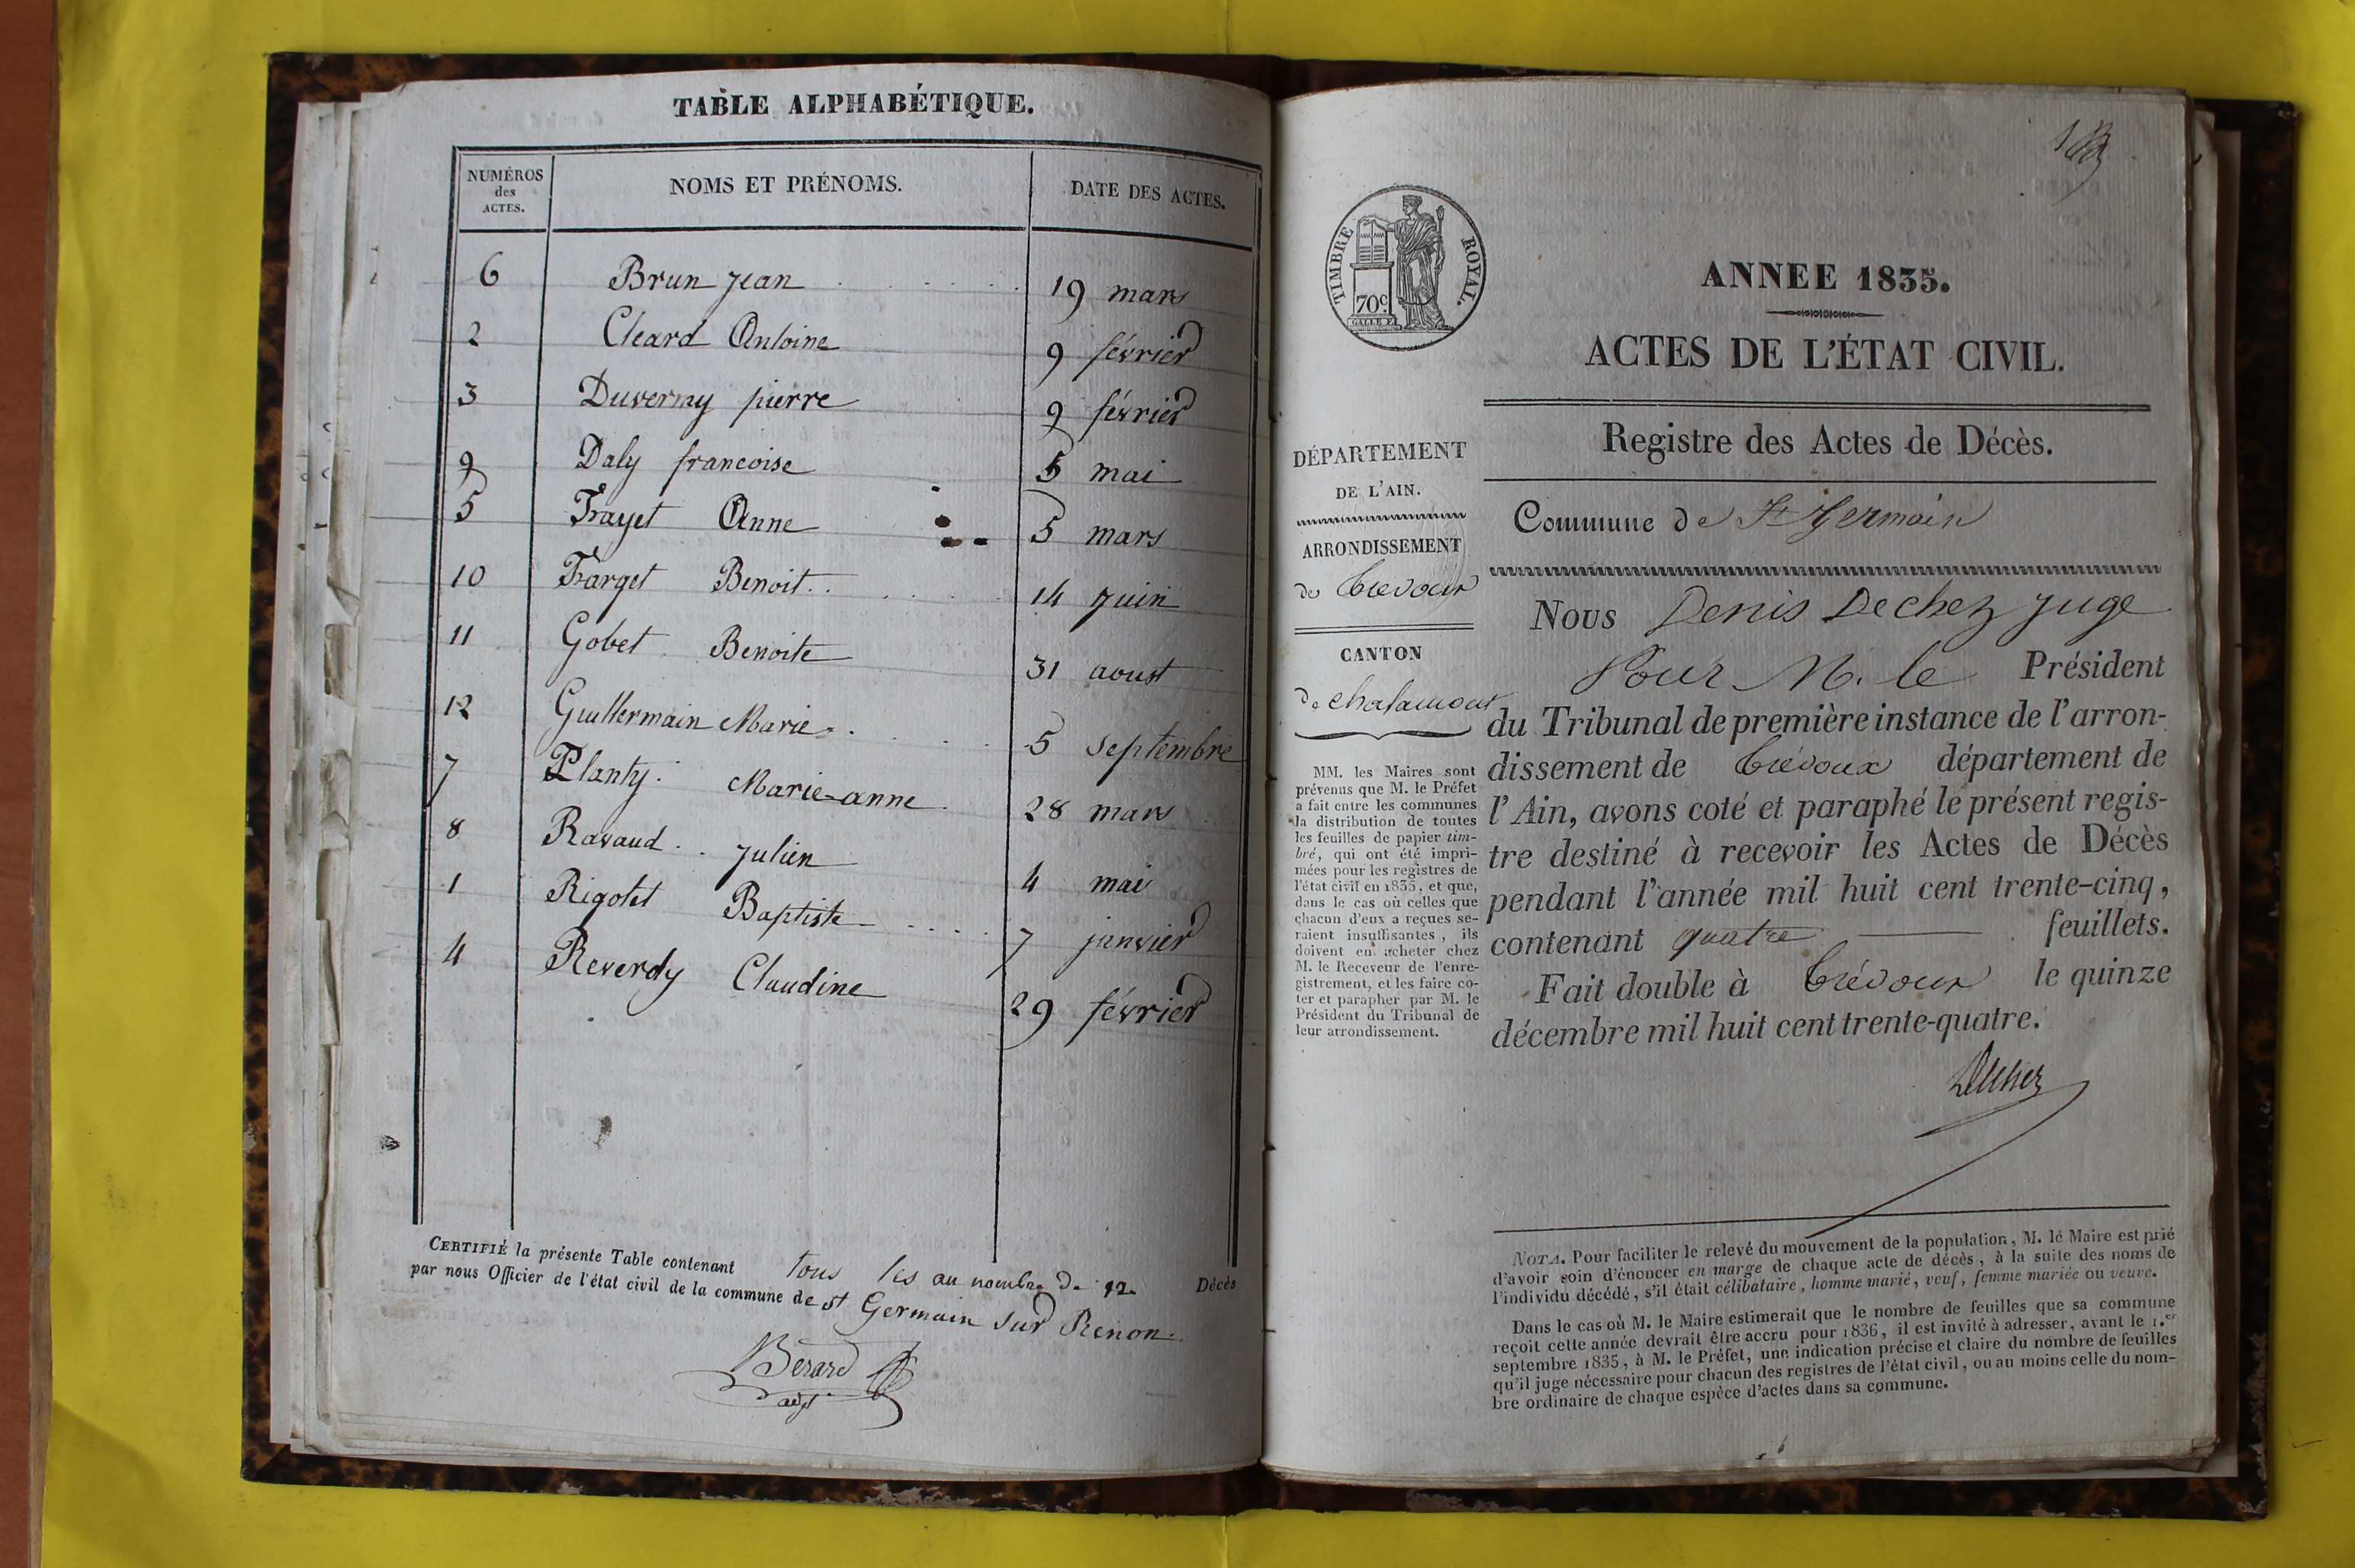 TABLE ALPHABÉTIQUE.
NUMÉROS des ACTES. NOMS ET PRÉNOMS. DATE DES ACTES.
6 Brun Jean 19 mars
2 Cleard Antoine 9 février
3 Duvernay pierre 9 février
9 Daly francoise 5 mai
5 Frayet Anne 5 mars
10 Farget Benoit 14 Juin
11 Gobet Benoite 31 aoust
12 Guillermain Marie 5 septembre
7 Planty Marie-anne 28 mars
8 Ravaud Julien 4 mai
1 Rigotet Baptiste 7 janvier
4 Reverdy Claudine 29 février
CERTIFIÉ la présente Table contenant tous les au nombre de 12 Décès
par nous Officier de l'état civil de la commune de st Germain sur Renon.
Bérard
adjt
TIMBRE ROYAL.
70c.
ANNEE 1835.
ACTES DE L'ÉTAT CIVIL.
Registre des Actes de Décès.
DÉPARTEMENT
DE L'AIN.
ARRONDISSEMENT
de Trevoux
CANTON
de chalamont
MM. les Maires sont
prévenus que M. le Préfet
a fait entre les communes
la distribution de toutes
les feuilles de papier tim-
bré, qui ont été impri-
mées pour les registres de
l'état civil en 1835, et que,
dans le cas où celles que
chacun d'eux a reçues se-
raient insuffisantes, ils
doivent en acheter chez
M. le Receveur de l'enre-
gistrement, et les faire co-
ter et parapher par M. le
Président du Tribunal de
leur arrondissement.
Commune de St Germain
Nous Denis Dechez Juge
Pour M. le Président
du Tribunal de première instance de l'arron-
dissement de Trévoux département de
l'Ain, avons coté et paraphé le présent regis-
tre destiné à recevoir les Actes de Décès
pendant l'année mil huit cent trente-cinq,
contenant quatre feuillets.
Fait double à Trévoux le quinze
décembre mil huit cent trente-quatre.
Dechez
NOTA. Pour faciliter le relevé du mouvement de la population, M. le Maire est prié
d'avoir soin d'énoncer en marge de chaque acte de décès, à la suite des noms de
l'individu décédé, s'il était célibataire, homme marié, veuf, femme mariée ou veuve.
Dans le cas où M. le Maire estimerait que le nombre de feuilles que sa commune
reçoit cette année devrait être accru pour 1836, il est invité à adresser, avant le 1.er
septembre 1835, à M. le Préfet, une indication précise et claire du nombre de feuilles
qu'il juge nécessaire pour chacun des registres de l'état civil, ou au moins celle du nom-
bre ordinaire de chaque espèce d'actes dans sa commune.